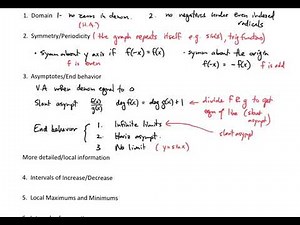 1. Domain 1- no zeros in denom. 2. no negatives under even indexed
(V.A.) radicals
2. Symmetry/Periodicity (the graph repeats itself e.g. sin(x), trig functions)
• symm about y axis if f(-x) = f(x) • symm about the origin
f is even f(-x) = -f(x) f is odd
3. Asymptotes/End behavior
V.A when denom equal to 0
Slant asympt f(x)/g(x) deg f(x) = deg g(x) + 1 divide f & g to get
eqn of line (slant
asympt)
End behavior 1. Infinite limits
2. Horiz asympt. slant asympt
3 No limit (y=sinx)
More detailed/local information
4. Intervals of Increase/Decrease
5. Local Maximums and Minimums